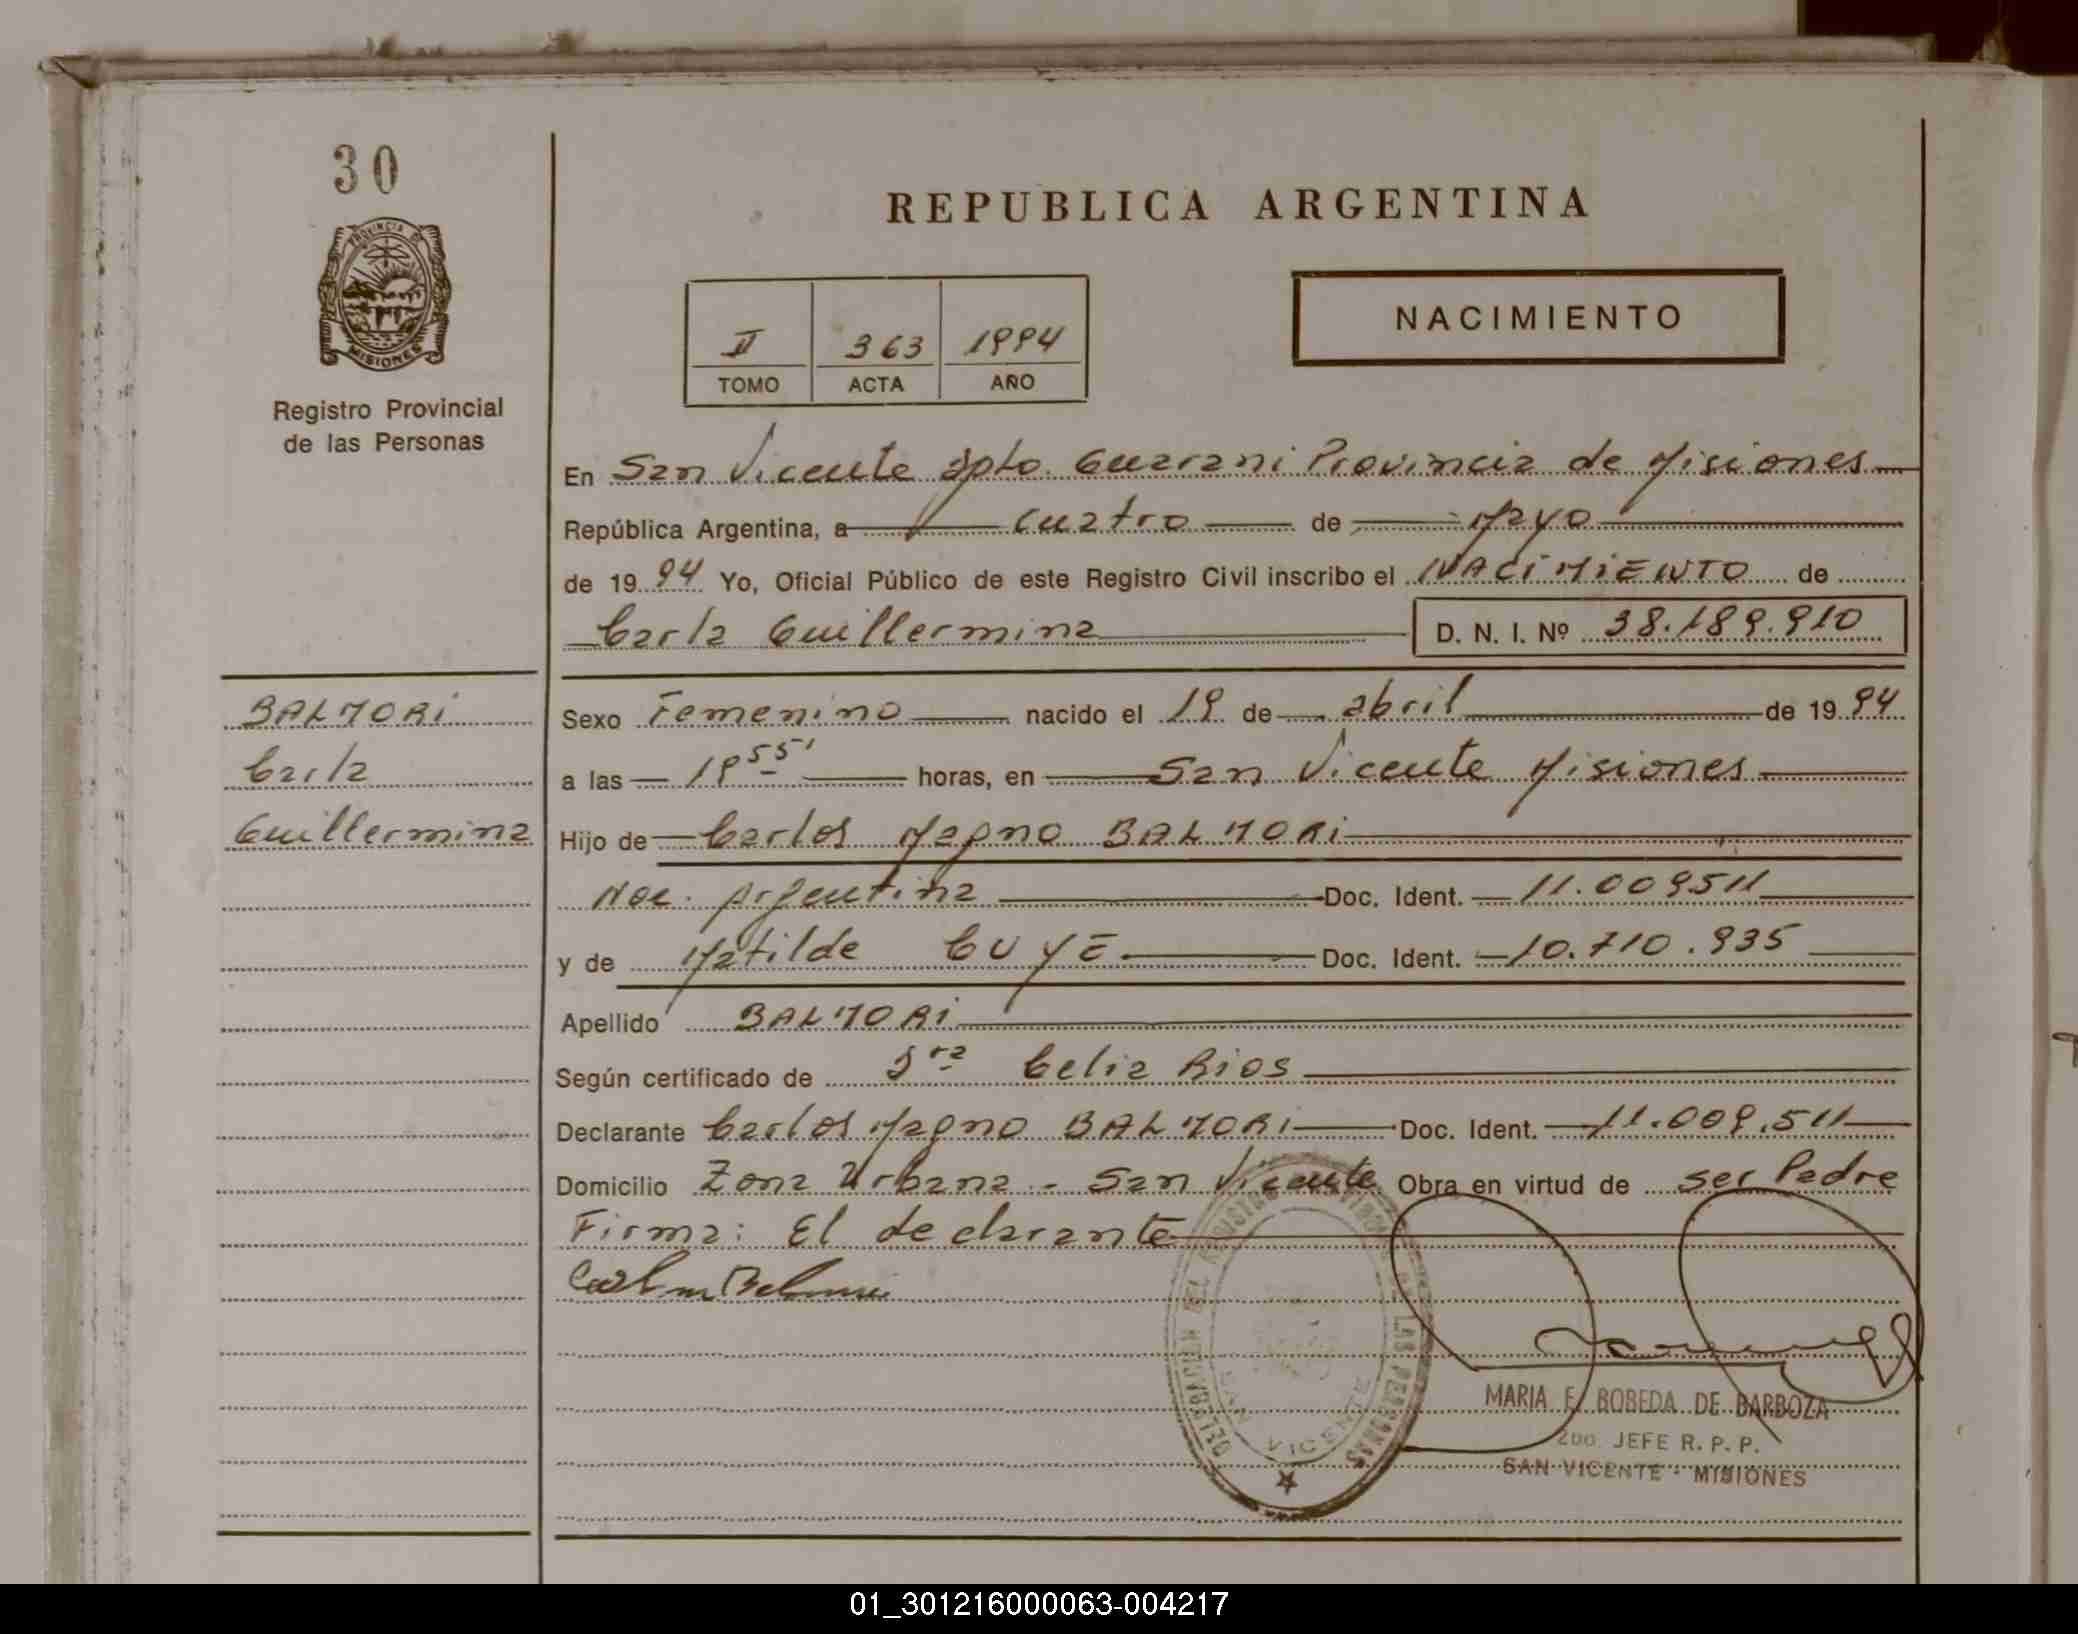 30
PROVINCIA DE
MISIONES
Registro Provincial
de las Personas
REPUBLICA ARGENTINA
II 363 1994
TOMO ACTA AÑO
NACIMIENTO
En San Vicente Dpto. Guarani Provincia de Misiones
República Argentina, a cuatro de Mayo
de 19 94 Yo, Oficial Público de este Registro Civil inscribo el NACIMIENTO de
Carla Guillermina D. N. I. Nº 38.189.910
BALMORI
Carla
Guillermina
Sexo Femenino nacido el 19 de abril de 19 94
a las 19 55' horas, en San Vicente Misiones
Hijo de Carlos Magno BALMORI
Nac. Argentina Doc. Ident. 11.009511
y de Matilde CUYE Doc. Ident. 10.710.935
Apellido BALMORI
Según certificado de Sra Celia Rios
Declarante Carlos Magno BALMORI Doc. Ident. 11.009.511
Domicilio Zona Urbana - San Vicente Obra en virtud de ser Padre
Firma: El declarante
DELEGACION DEL REGISTRO DE LAS PERSONAS
SAN VICENTE
MARIA E. BOBEDA DE BARBOZA
2do. JEFE R. P. P.
SAN VICENTE - MISIONES
01_301216000063-004217